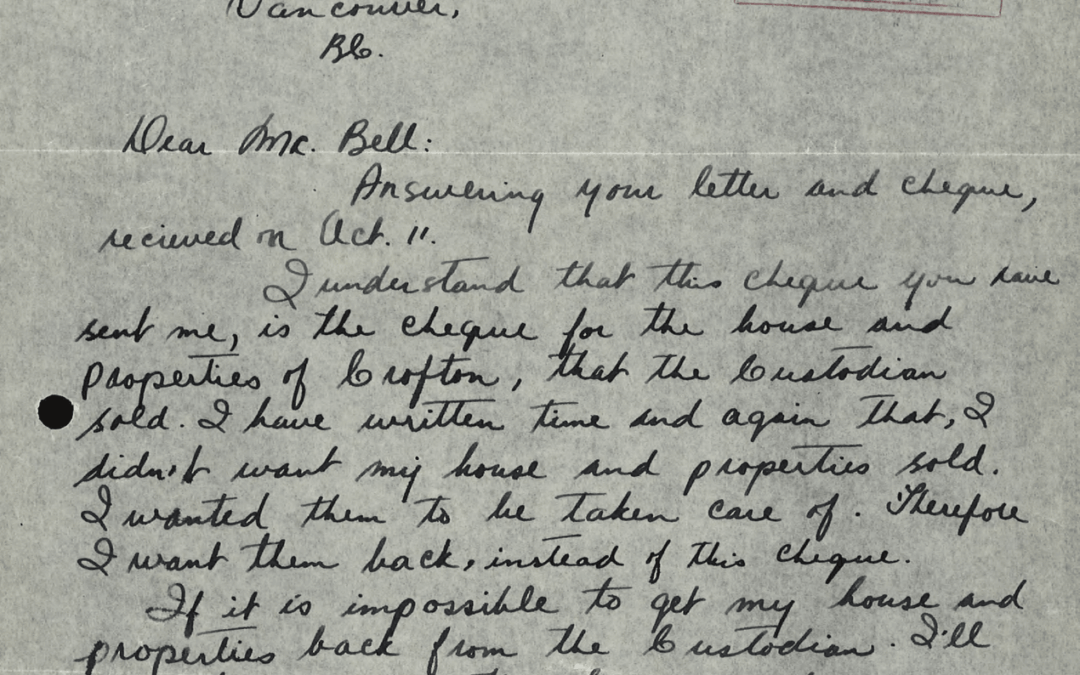 Vancouver,
BC.
Dear Mr. Bell:
Answering your letter and cheque,
recieved on Oct. 11.
I understand that this cheque you have
sent me, is the cheque for the house and
properties of Crofton, that the Custodian
sold. I have written time and again that, I
didn't want my house and properties sold.
I wanted them to be taken care of. Therefore
I want them back, instead of this cheque.
If it is impossible to get my house and
properties back from the Custodian. I'll